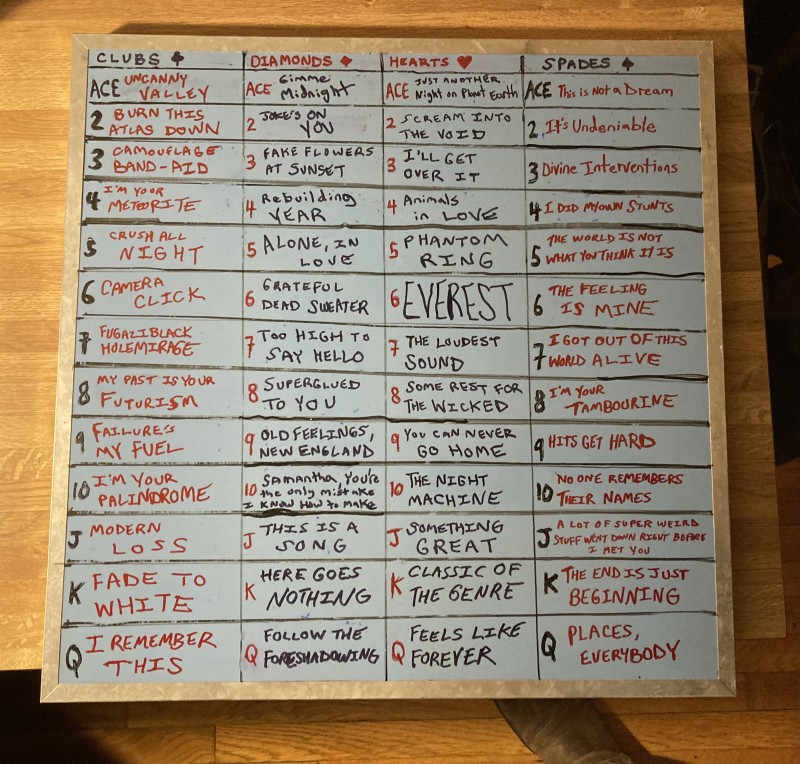 CLUBS ♣ DIAMONDS ♦ HEARTS ♥ SPADES ♠
ACE UNCANNY VALLEY
ACE Gimme Midnight
ACE JUST ANOTHER Night on Planet Earth
ACE This is Not a Dream
2 BURN THIS ATLAS DOWN
2 JOKE'S ON YOU
2 SCREAM INTO THE VOID
2 It's Undeniable
3 CAMOUFLAGE BAND-AID
3 FAKE FLOWERS AT SUNSET
3 I'LL GET OVER IT
3 Divine Interventions
4 I'M YOUR METEORITE
4 Rebuilding YEAR
4 Animals in LOVE
4 I DID MY OWN STUNTS
5 CRUSH ALL NIGHT
5 ALONE, IN LOVE
5 PHANTOM RING
5 THE WORLD IS NOT WHAT YOU THINK IT IS
6 CAMERA CLICK
6 GRATEFUL DEAD SWEATER
6 EVEREST
6 THE FEELING IS MINE
7 FUGAZI BLACK HOLE MIRAGE
7 TOO HIGH TO SAY HELLO
7 THE LOUDEST SOUND
7 I GOT OUT OF THIS WORLD ALIVE
8 MY PAST IS YOUR FUTURISM
8 SUPERGLUED TO YOU
8 SOME REST FOR THE WICKED
8 I'M YOUR TAMBOURINE
9 FAILURE'S MY FUEL
9 OLD FEELINGS, NEW ENGLAND
9 YOU CAN NEVER GO HOME
9 HITS GET HARD
10 I'M YOUR PALINDROME
10 Samantha, You're the only mistake I KNOW HOW to MAKE
10 THE NIGHT MACHINE
10 NO ONE REMEMBERS THEIR NAMES
J MODERN LOSS
J THIS IS A SONG
J SOMETHING GREAT
J A LOT OF SUPER WEIRD STUFF WENT DOWN RIGHT BEFORE I MET YOU
K FADE TO WHITE
K HERE GOES NOTHING
K CLASSIC OF THE GENRE
K THE END IS JUST BEGINNING
Q I REMEMBER THIS
Q FOLLOW THE FORESHADOWING
Q FEELS LIKE FOREVER
Q PLACES, EVERYBODY